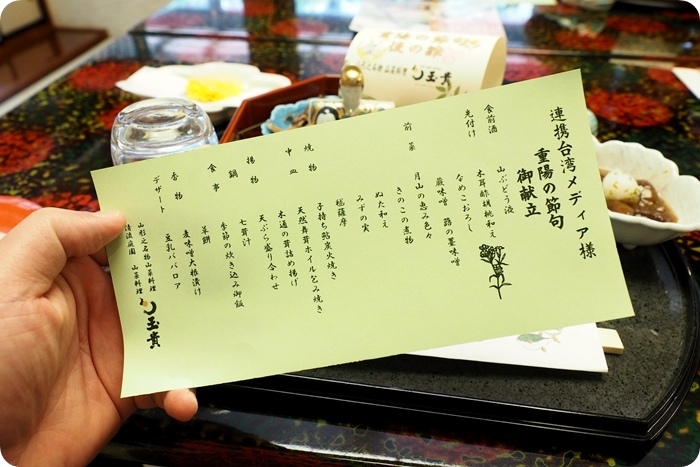 連携台湾メディア様
重陽の節句
御献立
食前酒
山ぶどう液
先付け
木耳酢胡桃和え
なめこおろし
前菜
蕗味噌
月山の恵み色々
きのこの煮物
ぬた和え
みずの実
焼物
子持ち鮎炭火焼き
中皿
天然舞茸ホイル包み焼き
揚物
木通の茸詰め揚げ
天ぷら盛り合わせ
鍋
七茸汁
食事
季節の炊き込み御飯
羊餅
香物
麦味噌大根漬け
デザート
豆乳ババロア
山形之名物山菜料理
清流庭園 山菜料理
玉貴
玉貴